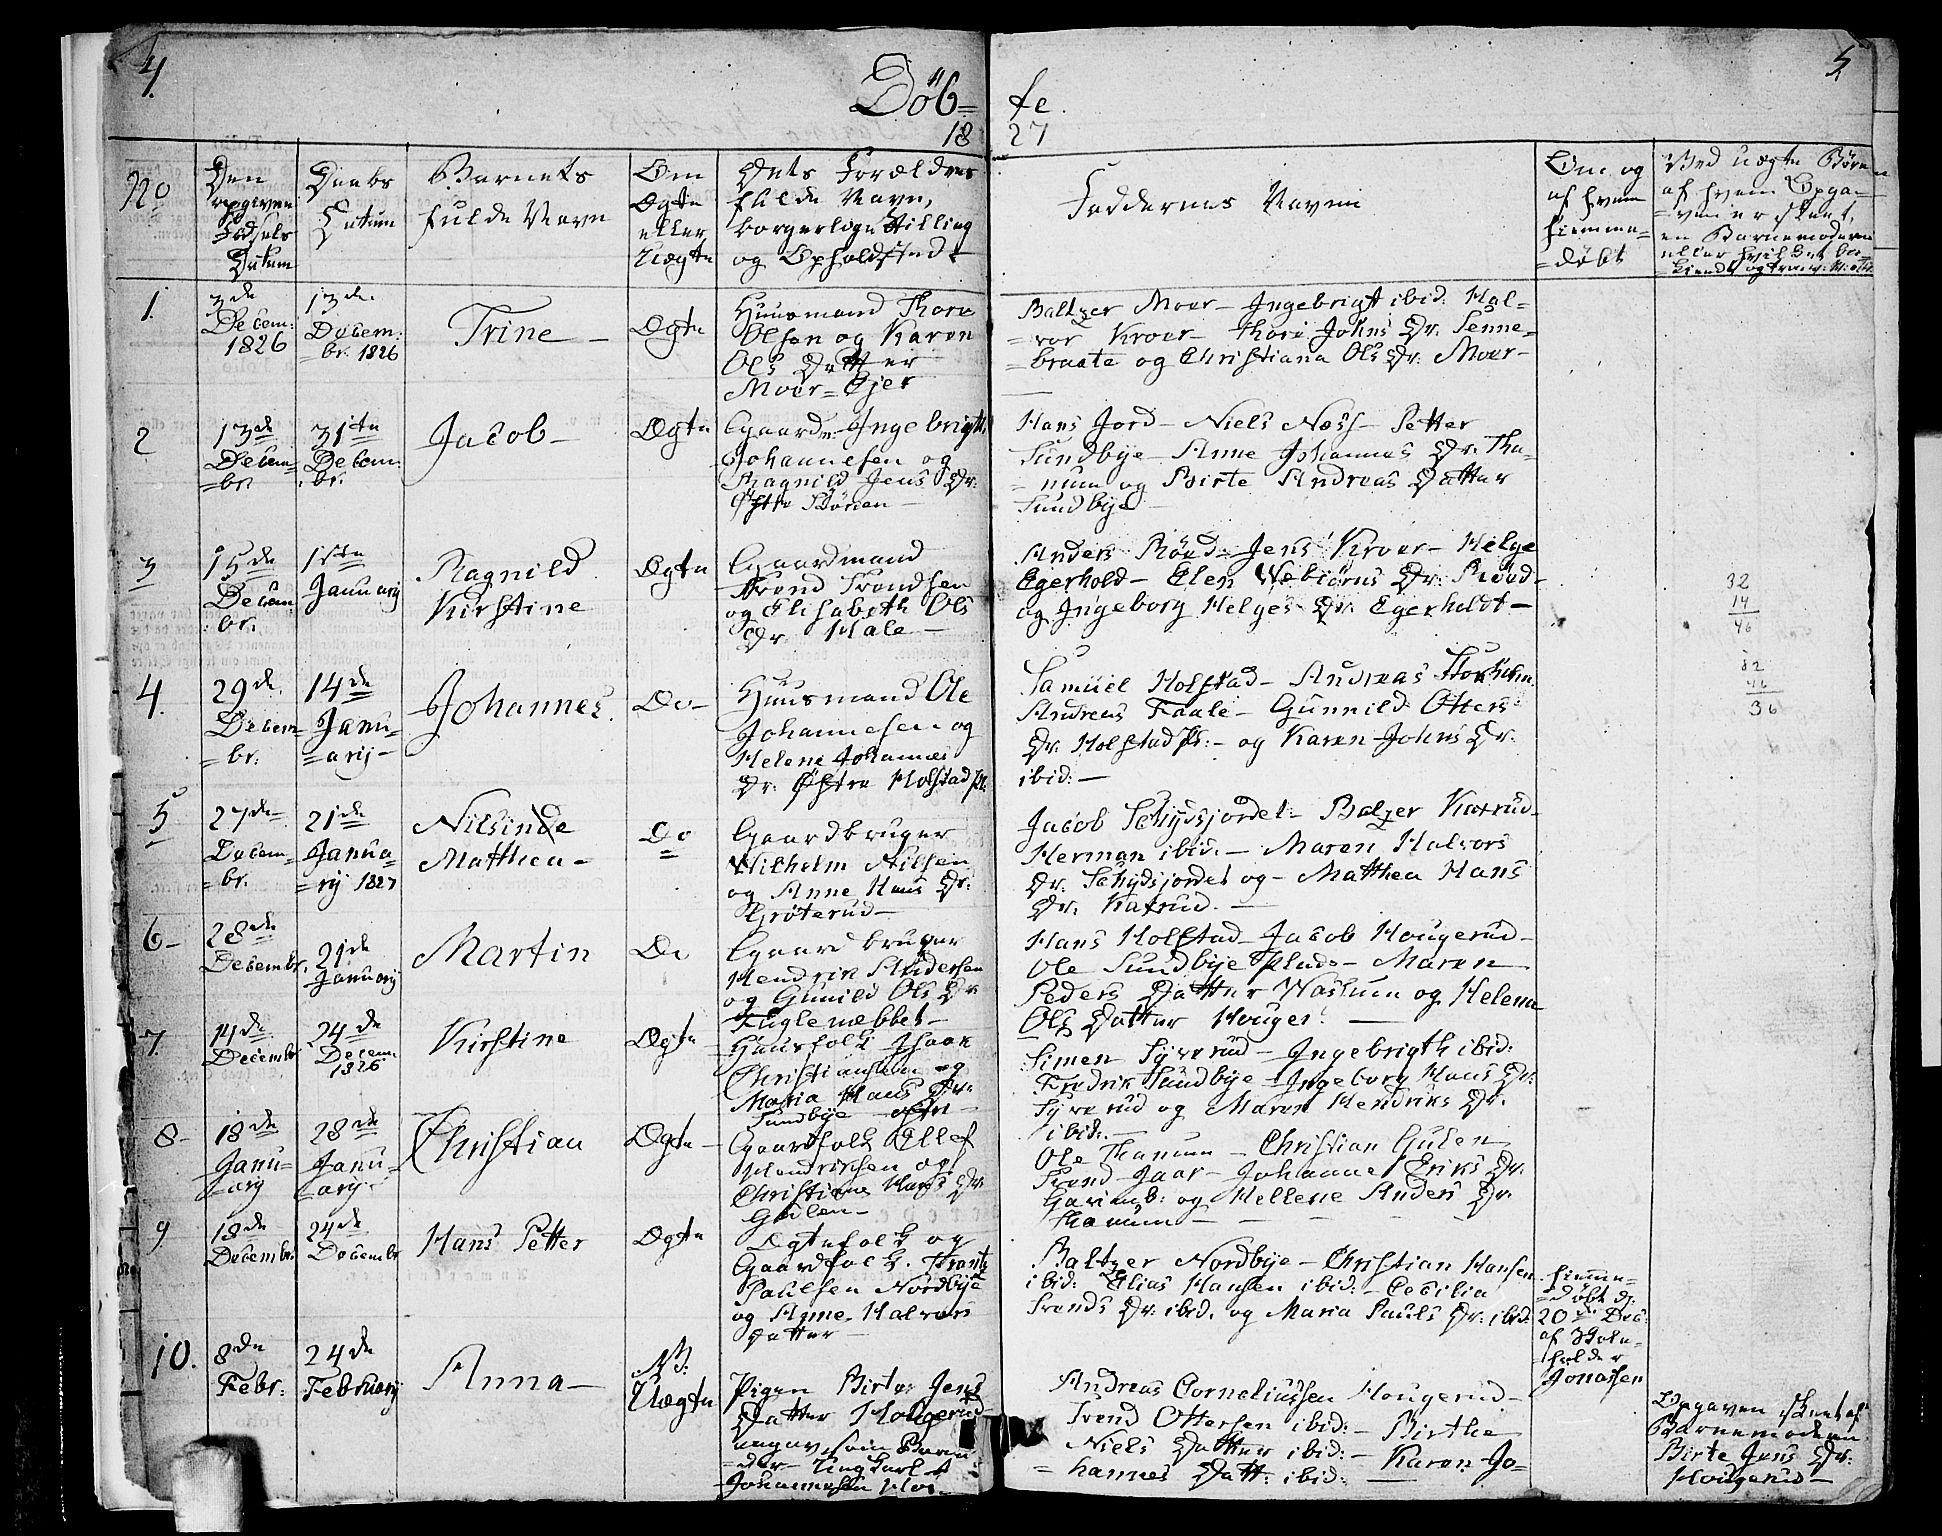 4.
5
Döb=
te
18
27
No
Den
opgivne
Fødsels
Datum
Daabs
Datum
Barnets
fulde Navn
Om
Ægte
eller
Uægte
Dets Forældres
fulde Navn,
borgerlige Stilling
og Opholdssted
Faddernes Navne
Om og
af hvem
hiemme=
=døbt
Ved uægte Børn
af hvem Opga=
=ven er skeet,
en Barnemoderen
eller
1.
3de
Decem:
1826
13de
Decem:
=br. 1826
Trine —
Ægte
Huusmand Thore
Olsen og Karen
Ols Datter
Moer=Ejer
Baltzer Moer — Ingebrigt ibid: Hal=
=vor Kroer — Thore Johns Dr. Senne=
=braate og Christiana Ols Dr. Moer —
2
13de
Decem=
=br.
31te
Decem:
br.
Jacob —
Ægte
Gaardm: Ingebrigt
Johannesen og
Ragnild Jens Dr:
Østre Børsen —
Hans Jord — Niels Næss — Petter
Sundbye — Anne Johannes Dr. Tha=
=num og Birte Andreas Datter
Sundbye —
3
15de
Decem
br.
1ste
Januarij
Ragnild
Kirstine
Ægte
Gaardmand
Trond Trondsen
og Elisabeth Ols
Dr. Hale —
Anders Röed — Jens Kroer — Helge
Egerhold — Elen Webiörns Dr. Röed —
og Ingeborg Helges Dr. Egerholdt —
32
14
46
82
46
36
4.
29de
Decem=
=br.
14de
Janu=
=arij —
Johannes.
Do —
Huusmand Ole
Johannesen og
Helene Johannes
Dr. Østre Holstad pl:
Samuel Holstad — Andreas
Andreas Faale — Gunnild Otters
Dr. Holstad pl: — og Karen Johns Dr.
ibid: —
5
27de
Decem=
=br.
21de
Janua=
=rij 1827
Nilsinde
Matthea —
Do
Gaardbruger
Wilhelm Nilsen
og Anne Hans Dr:
Gröterud —
Jacob Schydsjordet — Balzer Katrud —
Herman ibid. — Maren Halvors
Dr. Schydsjordet og — Matthea Hans
Dr: Katrud. —
6 —
28de
Decembr.
21de
Januarij
Martin
Do
Gaardbruger
Hendrik Andersen
og Gunild Ols Dr
Fuglenæbbet —
Hans Holstad — Jacob Hougerud —
Ole Sundbye Plads — Maren
Peders Datter Waskum og Helene
Ols Datter Houger. —
7.
14de
Decembr
24de
Decem
1826
Kirstine
Ægte
Huusfolk Isaak
Christiansen og
Maria Hans Dr:
Sundbye
Simen Syverud — Ingebrigth ibid:
Fredrik Sundbye — Ingeborg Hans Dr:
Syverud og Maren Hendriks Dr.
ibid: —
8 —
18de
Janu=
ary
28de
Janu
ary
Christian
Ægte —
Gaardfolk Ellef
Hendriksen og
Christiane Hans Dr
Gudlen —
Ole Thanum — Christian Gulen
Trond Jaar — Johanne Eriks Dr.
og Hellene Anders Dr.
Thanum —
9.
18de
Decembr
24de
Decembr
Hans Petter
Ægte
Ægtefolk og
Gaardfolk. Frantz
Paulsen Nordbye
og Anne Halvors
Datter —
Baltzer Nordbye — Christian Hansen
ibid: Elias Hansen ibid: — Cecilia
Tronds Dr: ibid. og Maria Pauls Dr: ibid:
hiemme=
=døbt d:
20de Dec:
af Skole=
=holder
Jonassen
10.
8de
Febr:
24de
Februarij
Anna —
NB.
Uægte
Pigen Birte Jens
Datter Hougerud
angav som Barne=
=fader — Ungkarl
Johannesen
Andreas Corneliussen Hougerud —
Trond Ottersen ibid: — Birthe
Niels Datter ibid: — Karen Jo=
=hannes Datt: ibid: —
Opgaven skeet af
Barnemoderen
Birte Jens Dr:
Hougerud —